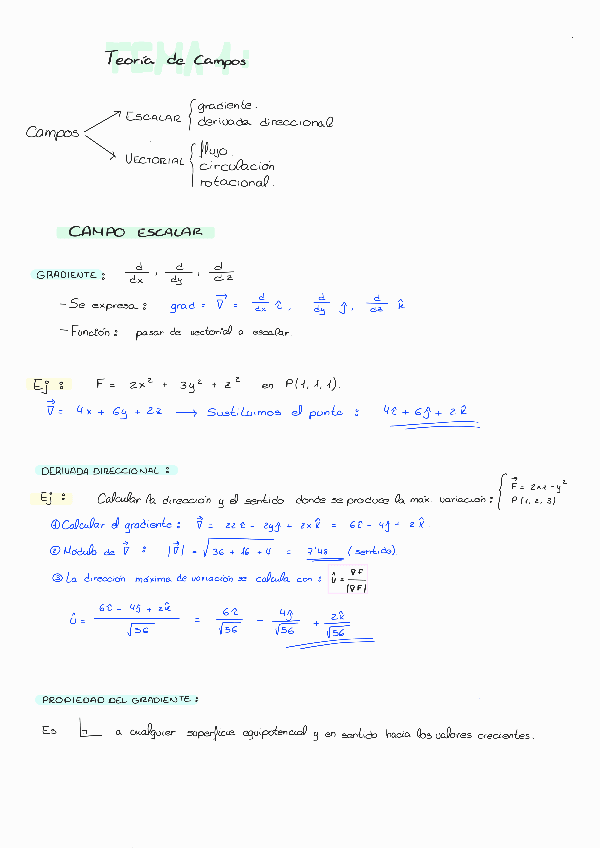 TEMA 1:
Teoría de Campos
Campos
ESCALAR { gradiente.
derivada direccional
VECTORIAL { flujo.
circulación
rotacional.
CAMPO ESCALAR
GRADIENTE: d/dx, d/dy, d/dz
- Se expresa: grad = ∇⃗ = d/dx î, d/dy ĵ, d/dz k̂
- Función: pasar de vectorial a escalar
Ej: F = 2x² + 3y² + z² en P(1,1,1).
∇⃗ = 4x + 6y + 2z → Sustituimos el punto: 4î + 6ĵ + 2k̂
DERIVADA DIRECCIONAL:
Ej: Calcular la dirección y el sentido donde se produce la máx. variación: { F⃗ = 2xz - y²
P(1,2,3)
① Calcular el gradiente: ∇⃗ = 2zî - 2yĵ + 2xk̂ = 6î - 4ĵ + 2k̂
② Módulo de ∇⃗: |∇⃗| = √36 + 16 + 4 = 7'48 (sentido)
③ La dirección máxima de variación se calcula con: û = ∇F/|∇F|
û = 6î - 4ĵ + 2k̂/√56 = 6î/√56 - 4ĵ/√56 + 2k̂/√56
PROPIEDAD DEL GRADIENTE:
Es a cualquier superficie equipotencial y en sentido hacia los valores crecientes.